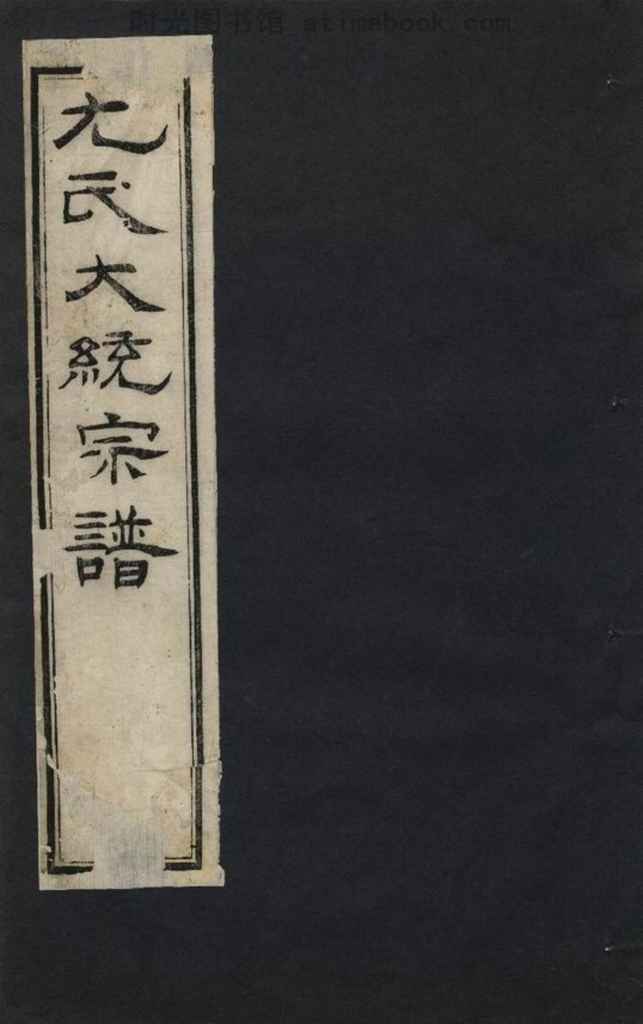 时光图书馆 atimebook.com
尤氏大統宗譜